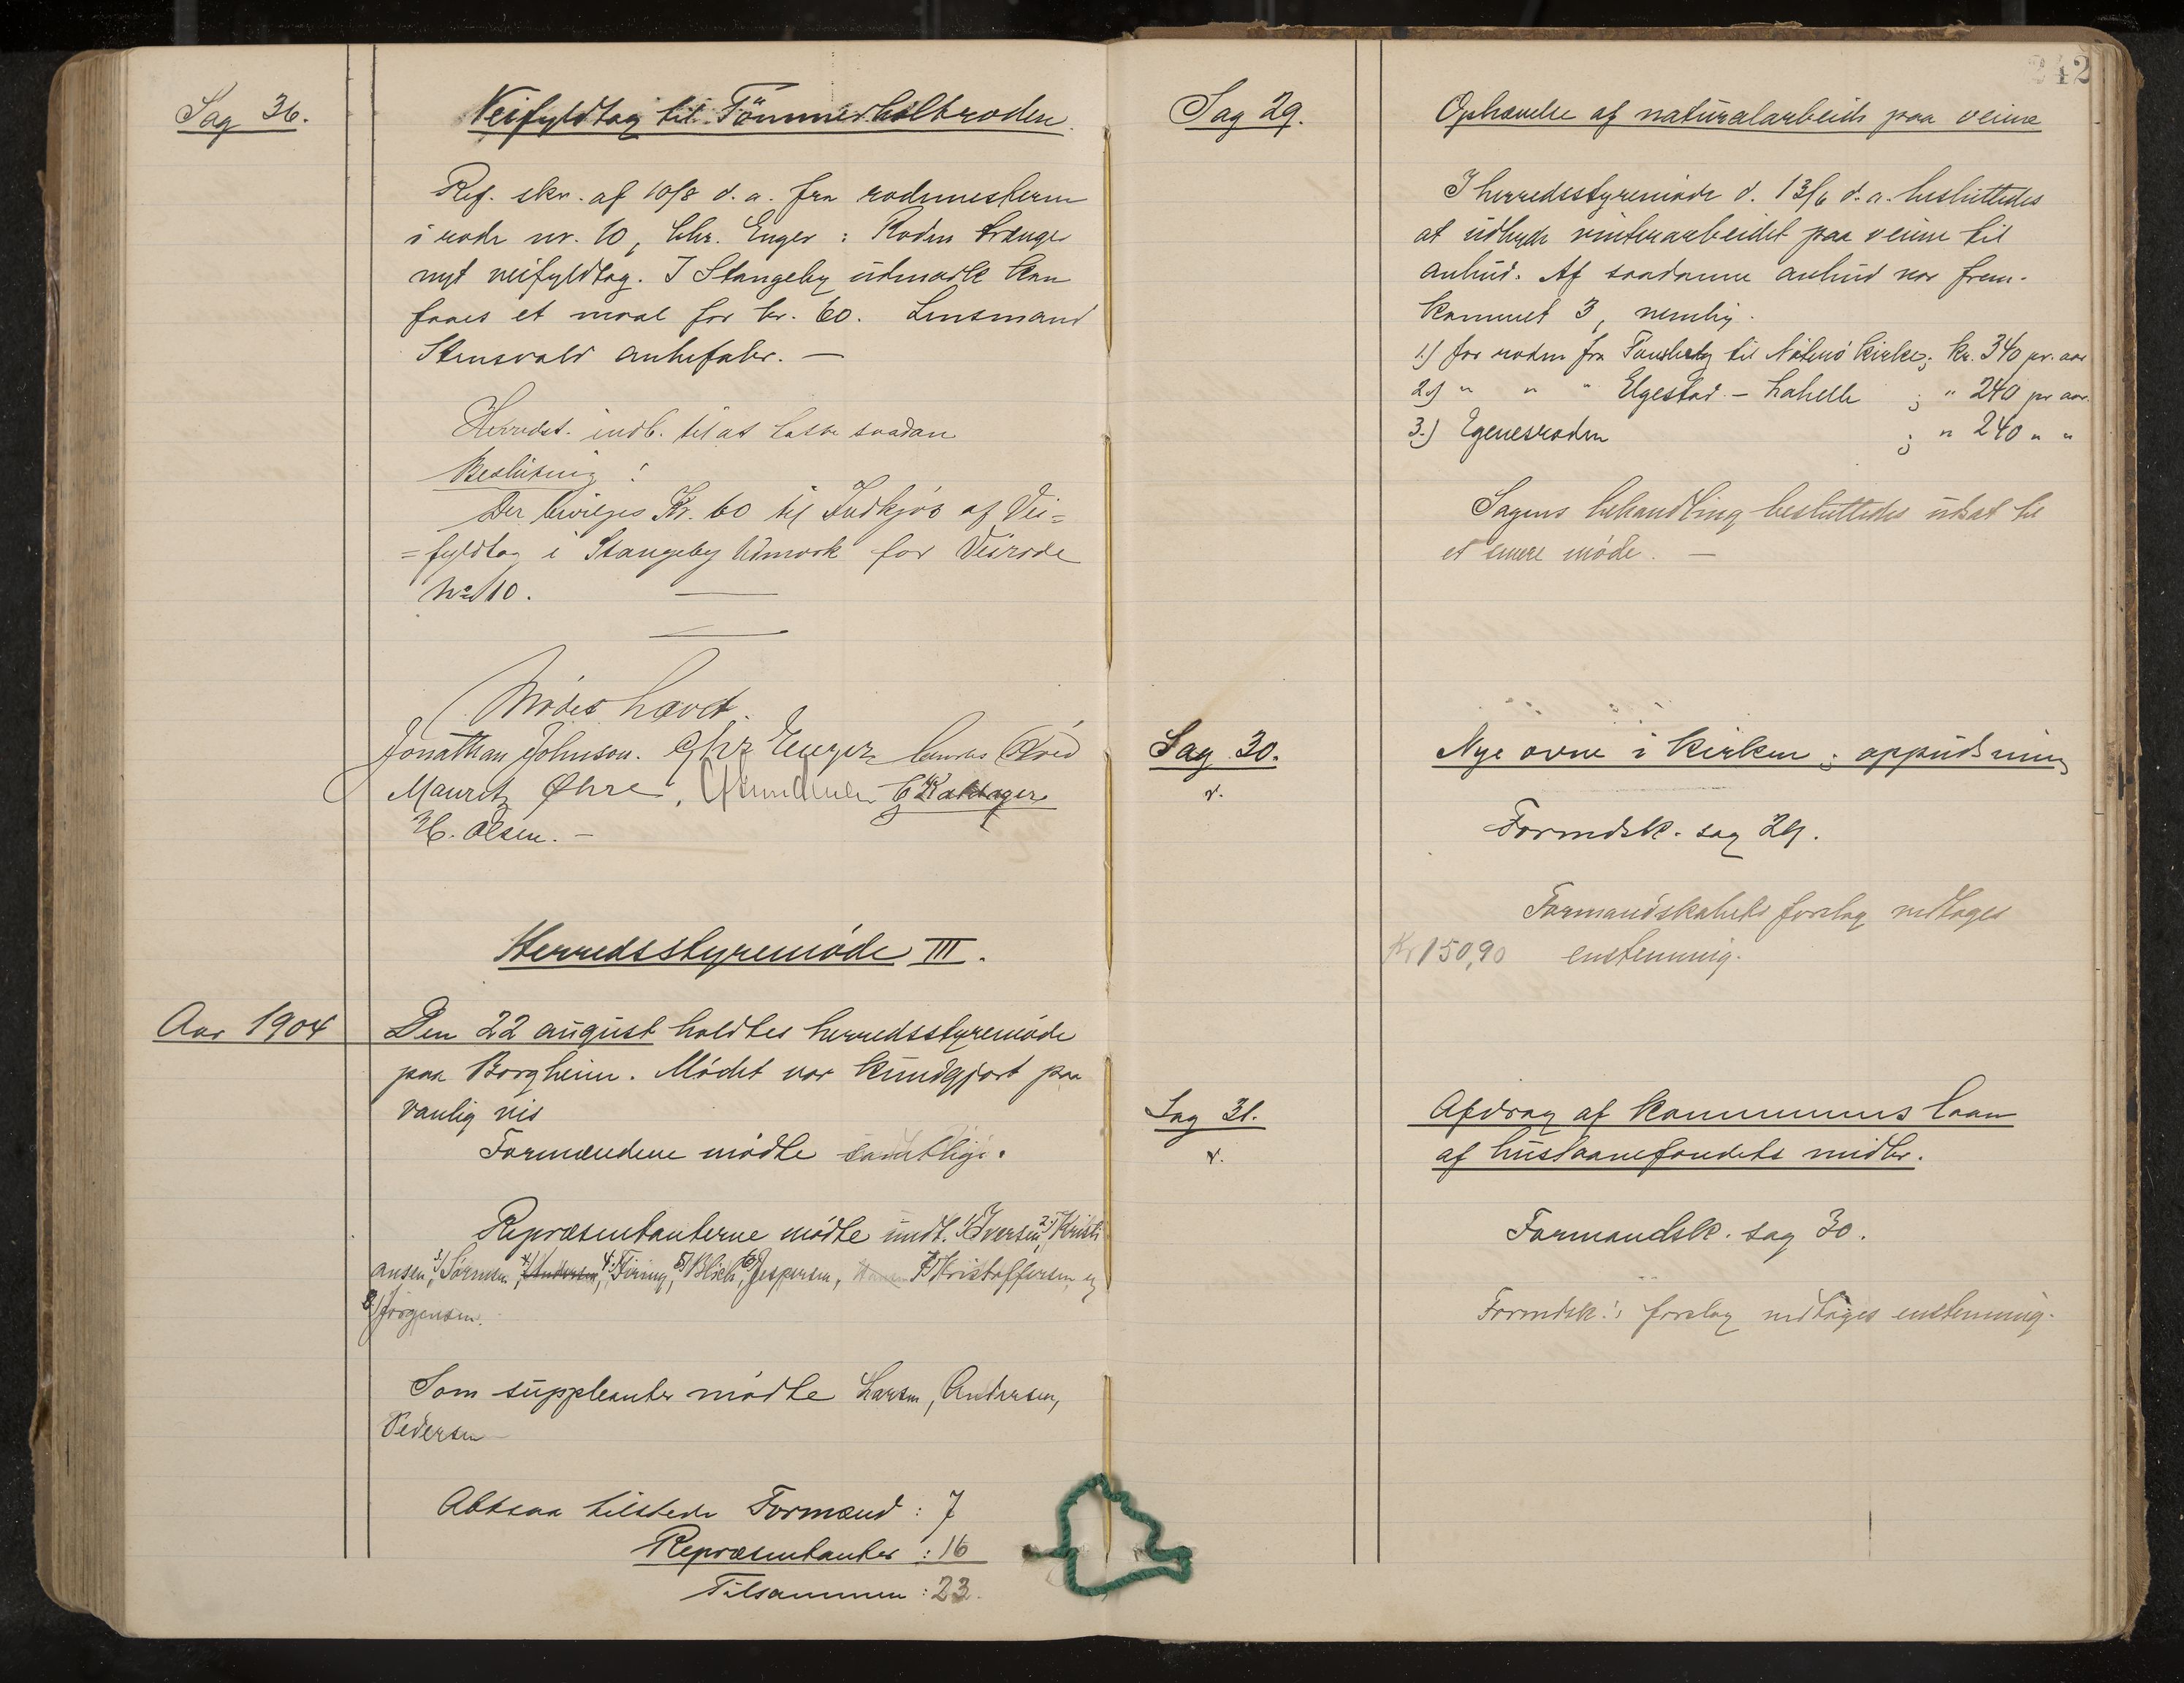 Sag 36.
Veifyldtag til Tömmerholtroden.
Ref. skr. af 10/8 d. a. fra rodemesteren
i rode nr. 10, Chr. Enger: Roden trænger
nyt veifyldtag. I Stangeby udmark kan
faaes et maal for kr. 60. Lensmand
Stensvold anbefaler. —
Herredst. indb. til at fatte saadan
Beslutning:
Der bevilges Kr. 60 til Indkjøb af Vei=
=fyldtag i Stangeby Udmark for Veirode
No 10.
Mødet hævet.
Jonathan Johnson. Chr Enger
Mauritz Øhre,
H. Olsen. —
Herredsstyremøde III.
Aar 1904
Den 22 august holdtes herredsstyremøde
paa Borgheim. Mødet var kundgjort paa
vanlig vis
Formændene mødte samtlige.
Repræsentanterne mødte undt. 1) Iversen, 2) Kristi
ansen, 3) Sørensen, 4) Andersen, 4) Føring, 5) Blich, 6) Jespersen, 7) Kristoffersen og
8) Jørgensen.
Som suppleanter mødte Larsen, Andersen,
Pedersen
Altsaa tilstede Formænd: 7
Repræsentanter: 16
Tilsammen: 23.
242
Sag 29.
Ophævelse af naturalarbeide paa veiene
I herredsstyremøde d. 13/6 d. a. besluttedes
at udbyde vinterarbeidet paa veiene til
anbud. Af saadanne anbud var frem-
kommet 3, nemlig.
1.) for roden fra Tønsberg til Nøterø kirke; kr. 340 pr. aar
2.) " " " Elgestad - Lahelle ; " 240 pr aar.
3.) Egenesroden ; " 240 " "
Sagens behandling besluttedes udsat til
et senere møde. —
Sag 30.
v.
Nye ovne i kirken; oppudsning
Formdsk. sag 29.
Formandskabets forslag vedtages
Kr 150,90 enstemmig.
Sag 31.
v.
Afdrag af kommunens laan
af huslaanefondets midler.
Formandsk. sag 30.
Formdsk.'s forslag vedtages enstemmig.